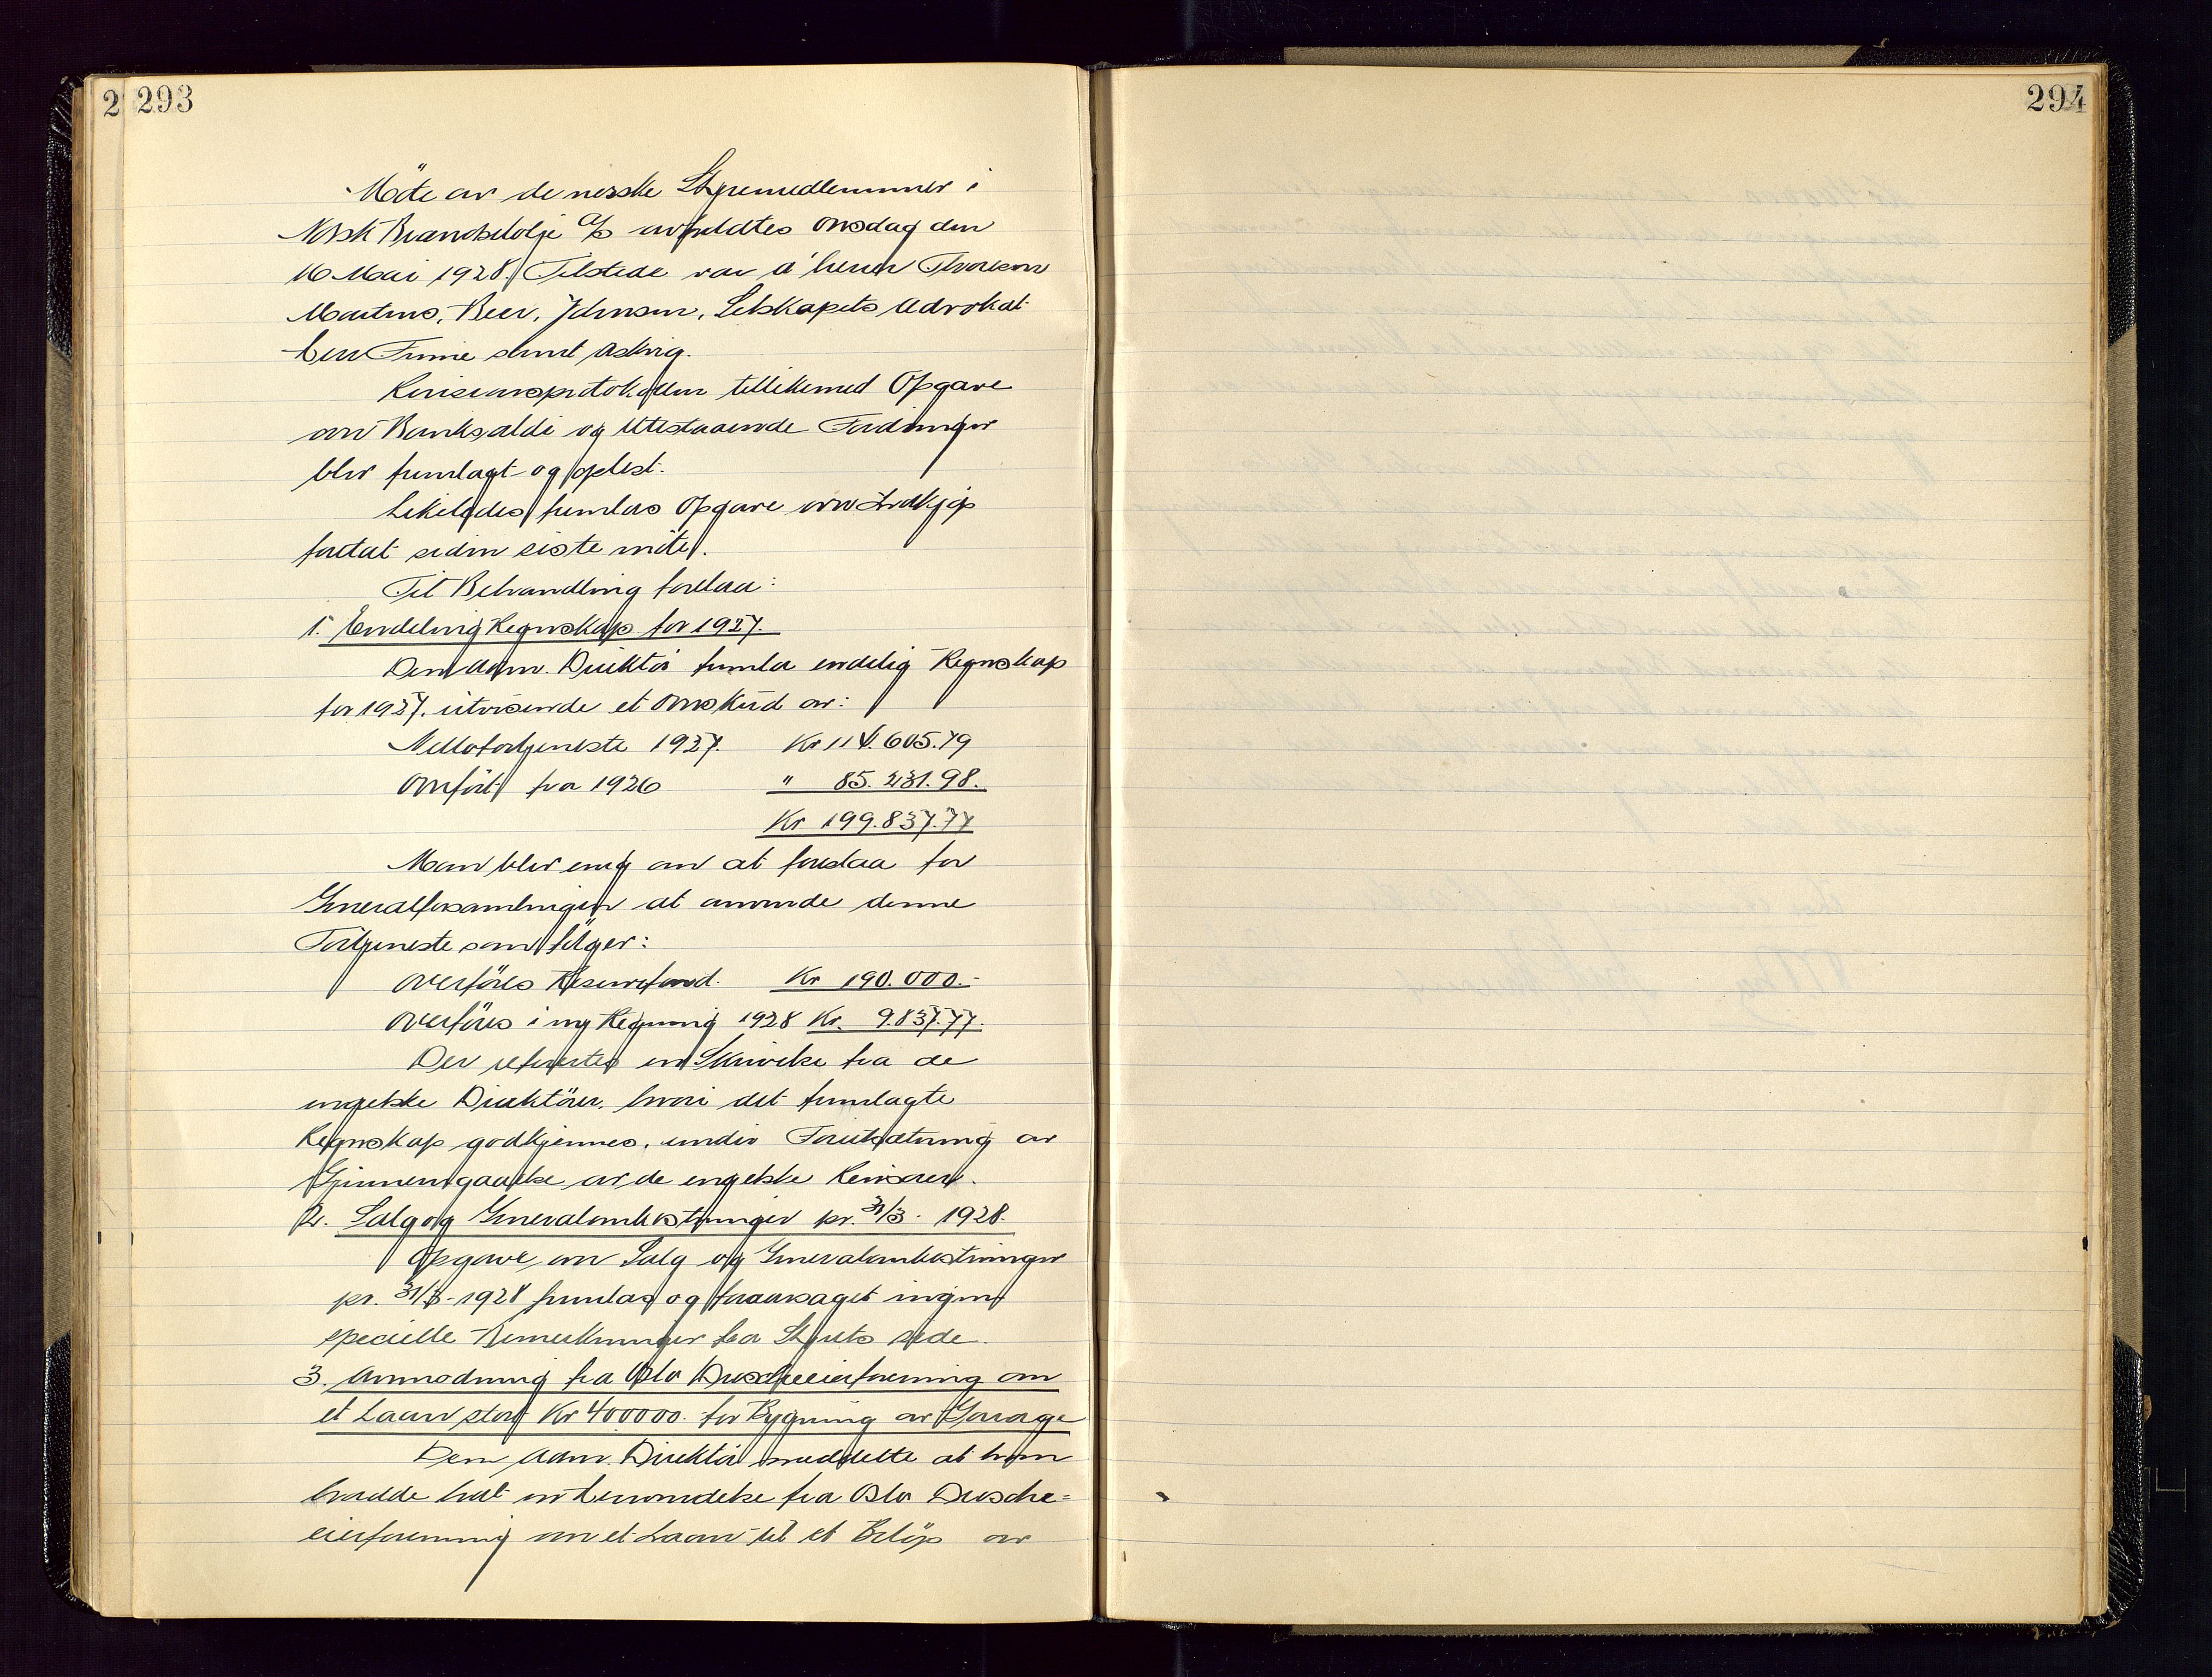 2 293
Möte av de norske Styremedlemmer i
Norsk Brændselolje A/S avholdtes Onsdag den
16 Mai 1928. Tilstede var d'herrer Thoresen
Martens, Beer, Johnson, Selskapets Advokat
herr Furre samt Askvig.
Revisionsprotokollen tillikemed Opgave
over Banksaldi og utestaaende Fordringer
blev fremlagt og oplest.
Likeledes fremlas Opgave over Indkjøp
foretat siden siste möte.
Til Behandling forelaa:
1. Endelig Regnskap for 1927.
Den adm. Direktör fremla endelig Regnskap
for 1927. utvisende et Overskud av:
Nettofortjeneste 1927. Kr 114.605.79
Overfört fra 1926 " 85.231.98.
Kr 199.837.77
Man blev enig om at foreslaa for
Generalforsamlingen at anvende denne
Fortjeneste som fölger:
Overföres Reservefond. Kr 190.000.-
Overföres i ny Regning 1928 Kr. 9.837.77.
Der refertes en Skrivelse fra de
engelske Direktörer, hvori det fremlagte
Regnskap godkjennes, under Forutsætning av
Gjennemgaaelse av de engelske Revisorer.
2. Salg og Generalomkostninger pr. 31/3. 1928.
Opgave over Salg og Generalomkostninger
pr. 31/3-1928 fremlas og foraarsaget ingen
specielle Bemerkninger fra Styrets side.
3. Anmodning fra Oslo Droscheeierforening om
et Laan stort Kr 400000. for Bygning av Garage
Den adm. Direktör meddelte at han
hadde hat en henvendelse fra Oslo Drosche=
eierforening om et Laan til et Belöp av
294